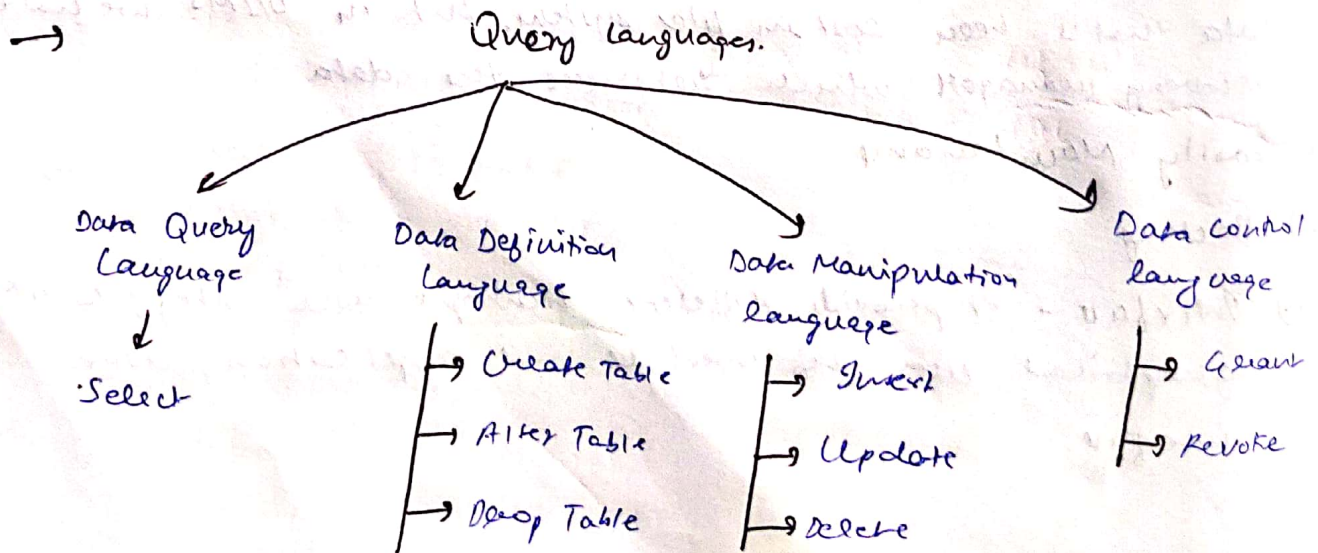 → Query Languages.
Data Query
Language
Select
Data Definition
Language
Create Table
Alter Table
Drop Table
Data Manipulation
Language
Insert
Update
Delete
Data Control
Language
Grant
Revoke